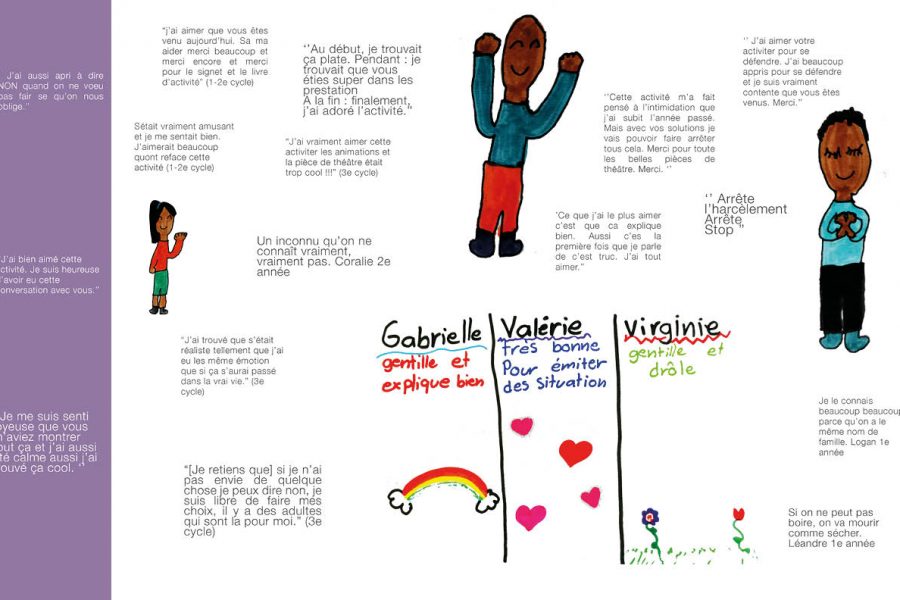 J'ai aussi apri à dire
NON quand on ne voeu
pas fair se qu'on nous
oblige."
"J'ai bien aimé cette
activité. Je suis heureuse
d'avoir eu cette
conversation avec vous."
Je me suis senti
joyeuse que vous
m'aviez montrer
tout ça et j'ai aussi
été calme aussi j'ai
trouvé ça cool. ‘’
“j’ai aimer que vous êtes
venu aujourd’hui. Sa ma
aider merci beaucoup et
merci encore et merci
pour le signet et le livre
d’activité” (1-2e cycle)
Sétait vraiment amusant
et je me sentait bien.
J’aimerait beaucoup
quont reface cette
activité (1-2e cycle)
‘’Au début, je trouvait
ça plate. Pendant : je
trouvait que vous
éties super dans les
prestation
À la fin : finalement,
j’ai adoré l’activité.”
“J’ai vraiment aimer cette
activiter les animations et
la pièce de théâtre était
trop cool !!!” (3e cycle)
Un inconnu qu’on ne
connaît vraiment,
vraiment pas. Coralie 2e
année
“J’ai trouvé que s’était
réaliste tellement que j’ai
eu les même émotion
que si ça s’aurai passé
dans la vrai vie.” (3e
cycle)
“[Je retiens que] si je n’ai
pas envie de quelque
chose je peux dire non, je
suis libre de faire mes
choix, il y a des adultes
qui sont la pour moi.” (3e
cycle)
‘’ J’ai aimer votre
activiter pour se
défendre. J’ai beaucoup
appris pour se défendre
et je suis vraiment
contente que vous êtes
venus. Merci.”
‘’Cette activité m’a fait
pensé à l’intimidation que
j’ai subit l’année passé.
Mais avec vos solutions je
vais pouvoir faire arrêter
tous cela. Merci pour toute
les belles pièces de
théâtre. Merci. ‘’
‘Ce que j’ai le plus aimer
c’est que ca explique
bien. Aussi c’es la
première fois que je parle
de c’est truc. J’ai tout
aimer.”
‘’ Arrête
l’harcèlement
Arrête
Stop ”
Gabrielle
gentille et
explique bien
Valérie
très bonne
Pour émiter
des situation
Virginie
gentille et
drôle
Je le connais
beaucoup beaucoup
parce qu’on a le
même nom de
famille. Logan 1e
année
Si on ne peut pas
boire, on va mourir
comme sécher.
Léandre 1e année